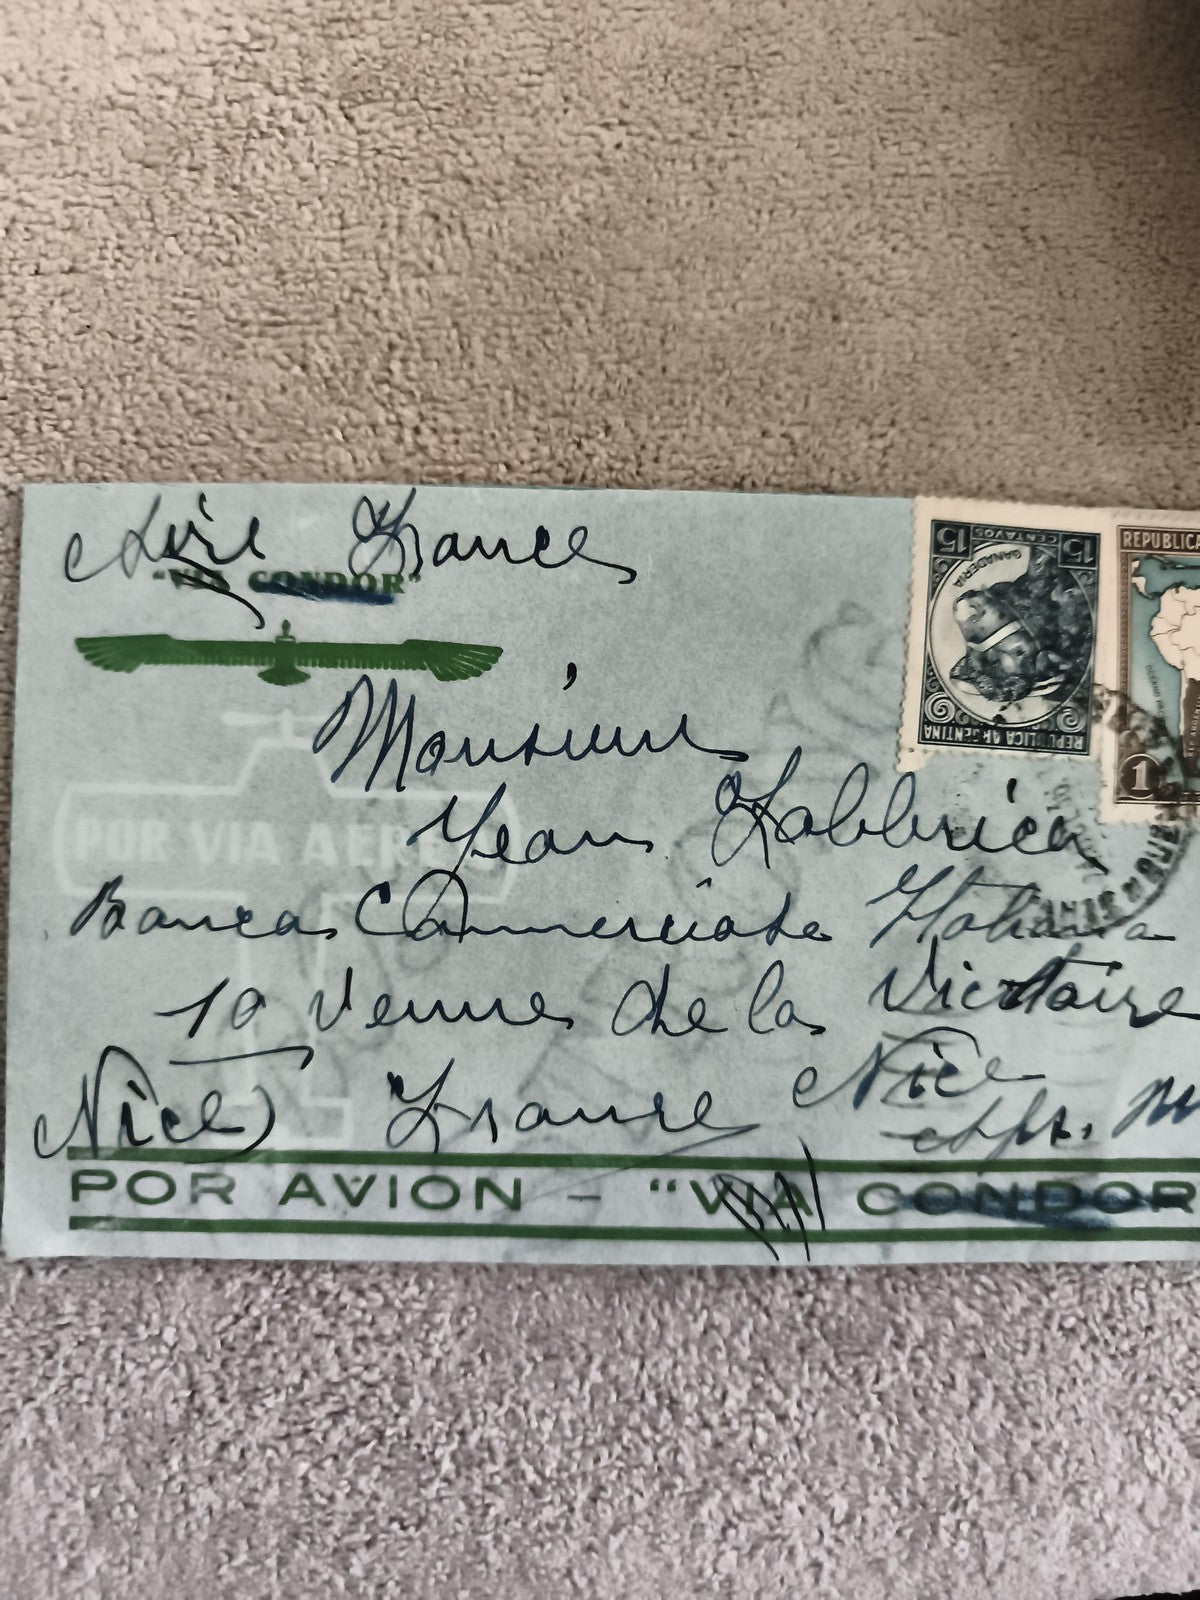 Aire France
"VIA CONDOR"
Monsieur
Jean Fabbrica
Banca Commerciale Italiana
10 Avenue de la Victoire
Nice France Nice
POR AVION - "VIA CONDOR
POR VIA AERE
15 15
CENTAVOS
GANADERIA
REPUBLICA ARGENTINA
REPUBLICA
OCEANO
1